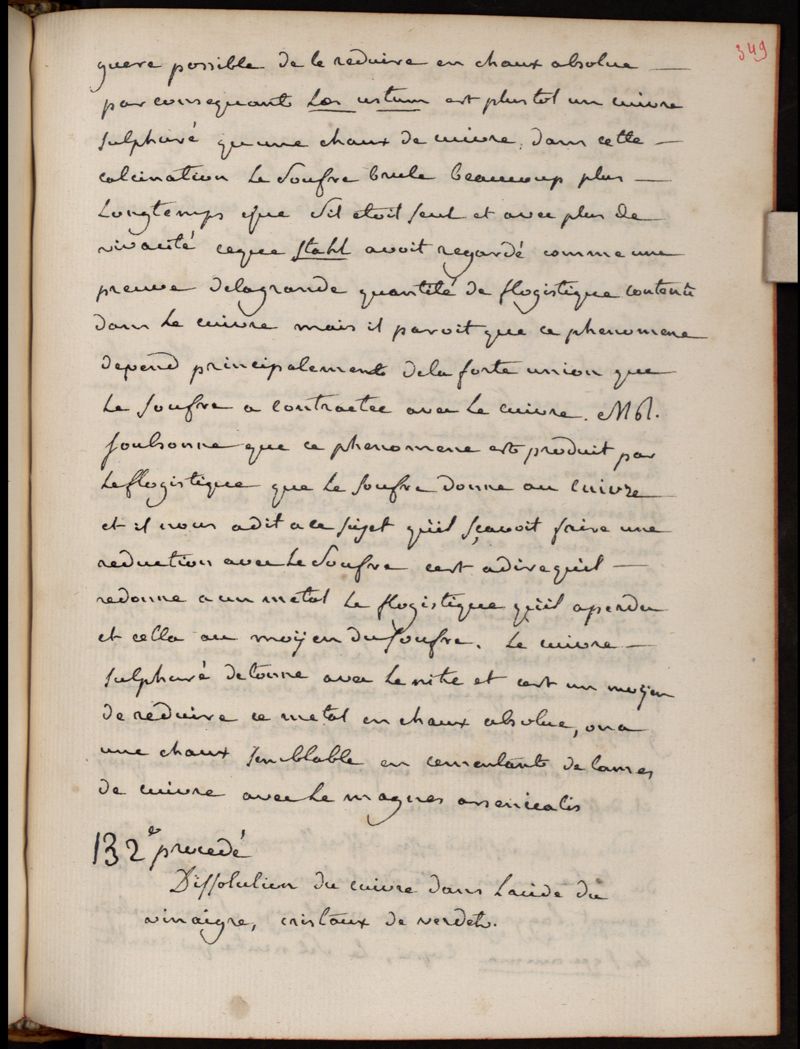 349
guere possible de le reduire en chaux absolue —
par consequants Les ustum est plustot un cuivre
sulphuré qu'une chaux de cuivre, dans cette —
calcination le soufre brule beaucoup plus —
Longtemps que sil etoit seul et avec plus de
vivacité ceque Stahl avoit regardé comme une
preuve delagrande quantité de flogistique contenu
dans le cuivre mais il paroit que ce phenomene
depend principalements dela forte union que
le soufre a contractee avec le cuivre.
soubsonne que ce phenomene est produit par
Leflogistique que le soufre donne au cuivre
et il nous adit a ce sujet quil sçavoit faire une
reduction avec le soufre cest adire quil —
redonne a un metal le flogistique quil aperdu
et cella au moÿen du soufre. Le cuivre —
sulphuré detonne avec le nitre et cest un moyen
de reduire ce metal en chaux absolue, on a
une chaux semblable en cementants de lames
de cuivre avec le magnes arsenicalis
132e precedé
Dissolution du cuivre dans Lacide du
vinaigre, cristaux de verdets.